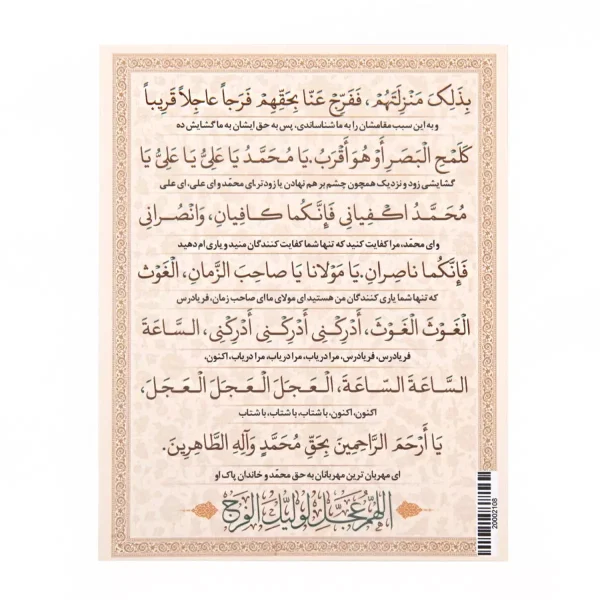 بِذَلِکَ مَنْزِلَتَهُمْ، فَفَرِّجْ عَنّا بِحَقِّهِمْ فَرَجاً عاجِلاً قَریباً
و به این سبب مقامشان را به ما شناساندی، پس به حق ایشان به ما گشایش ده
کَلَمْحِ الْبَصَرِ أَوْ هُوَ أَقْرَبُ. یا مُحَمَّدُ یا عَلِیُّ یا عَلِیُّ یا
گشایشی زود و نزدیک همچون چشم بر هم نهادن یا زودتر، ای محمّد و ای علی، ای علی
مُحَمَّدُ اکْفِیانی فَإِنَّکُما کافِیانِ، وَانْصُرانی
و ای محمّد، مرا کفایت کنید که تنها شما کفایت کنندگان منید و یاری ام دهید
فَإِنَّکُما ناصِرانِ. یا مَوْلانا یا صاحِبَ الزَّمانِ، الْغَوْثَ
که تنها شما یاری کنندگان من هستید ای مولای ما ای صاحب زمان، فریادرس
الْغَوْثَ الْغَوْثَ، أَدْرِکْنِی أَدْرِکْنِی أَدْرِکْنِی، السّاعَةَ
فریادرس، فریادرس، مرا دریاب، مرا دریاب، مرا دریاب، اکنون،
السّاعَةَ السّاعَةَ، الْعَجَلَ الْعَجَلَ الْعَجَلَ،
اکنون، اکنون، با شتاب، با شتاب، با شتاب
یا أَرْحَمَ الرّاحِمِینَ بِحَقِّ مُحَمَّدٍ وَآلِهِ الطّاهِرِینَ.
ای مهربان ترین مهربانان به حق محمّد و خاندان پاک او
اللهم عجل لولیک الفرج
20002108